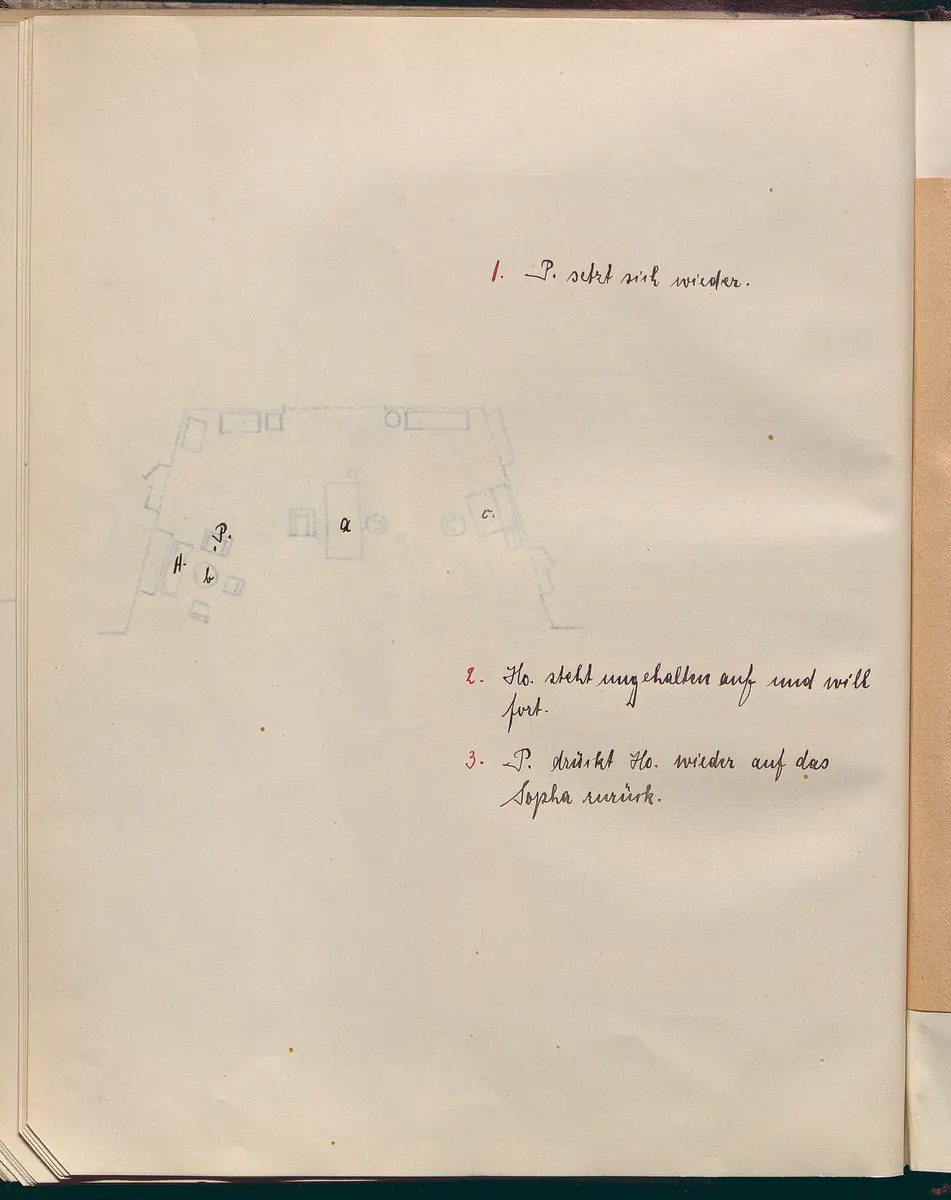 1. P. setzt sich wieder.
a
c.
P.
H.
b
2. Ho. steht ungehalten auf und will
fort.
3. P. drückt Ho. wieder auf das
Sopha zurück.